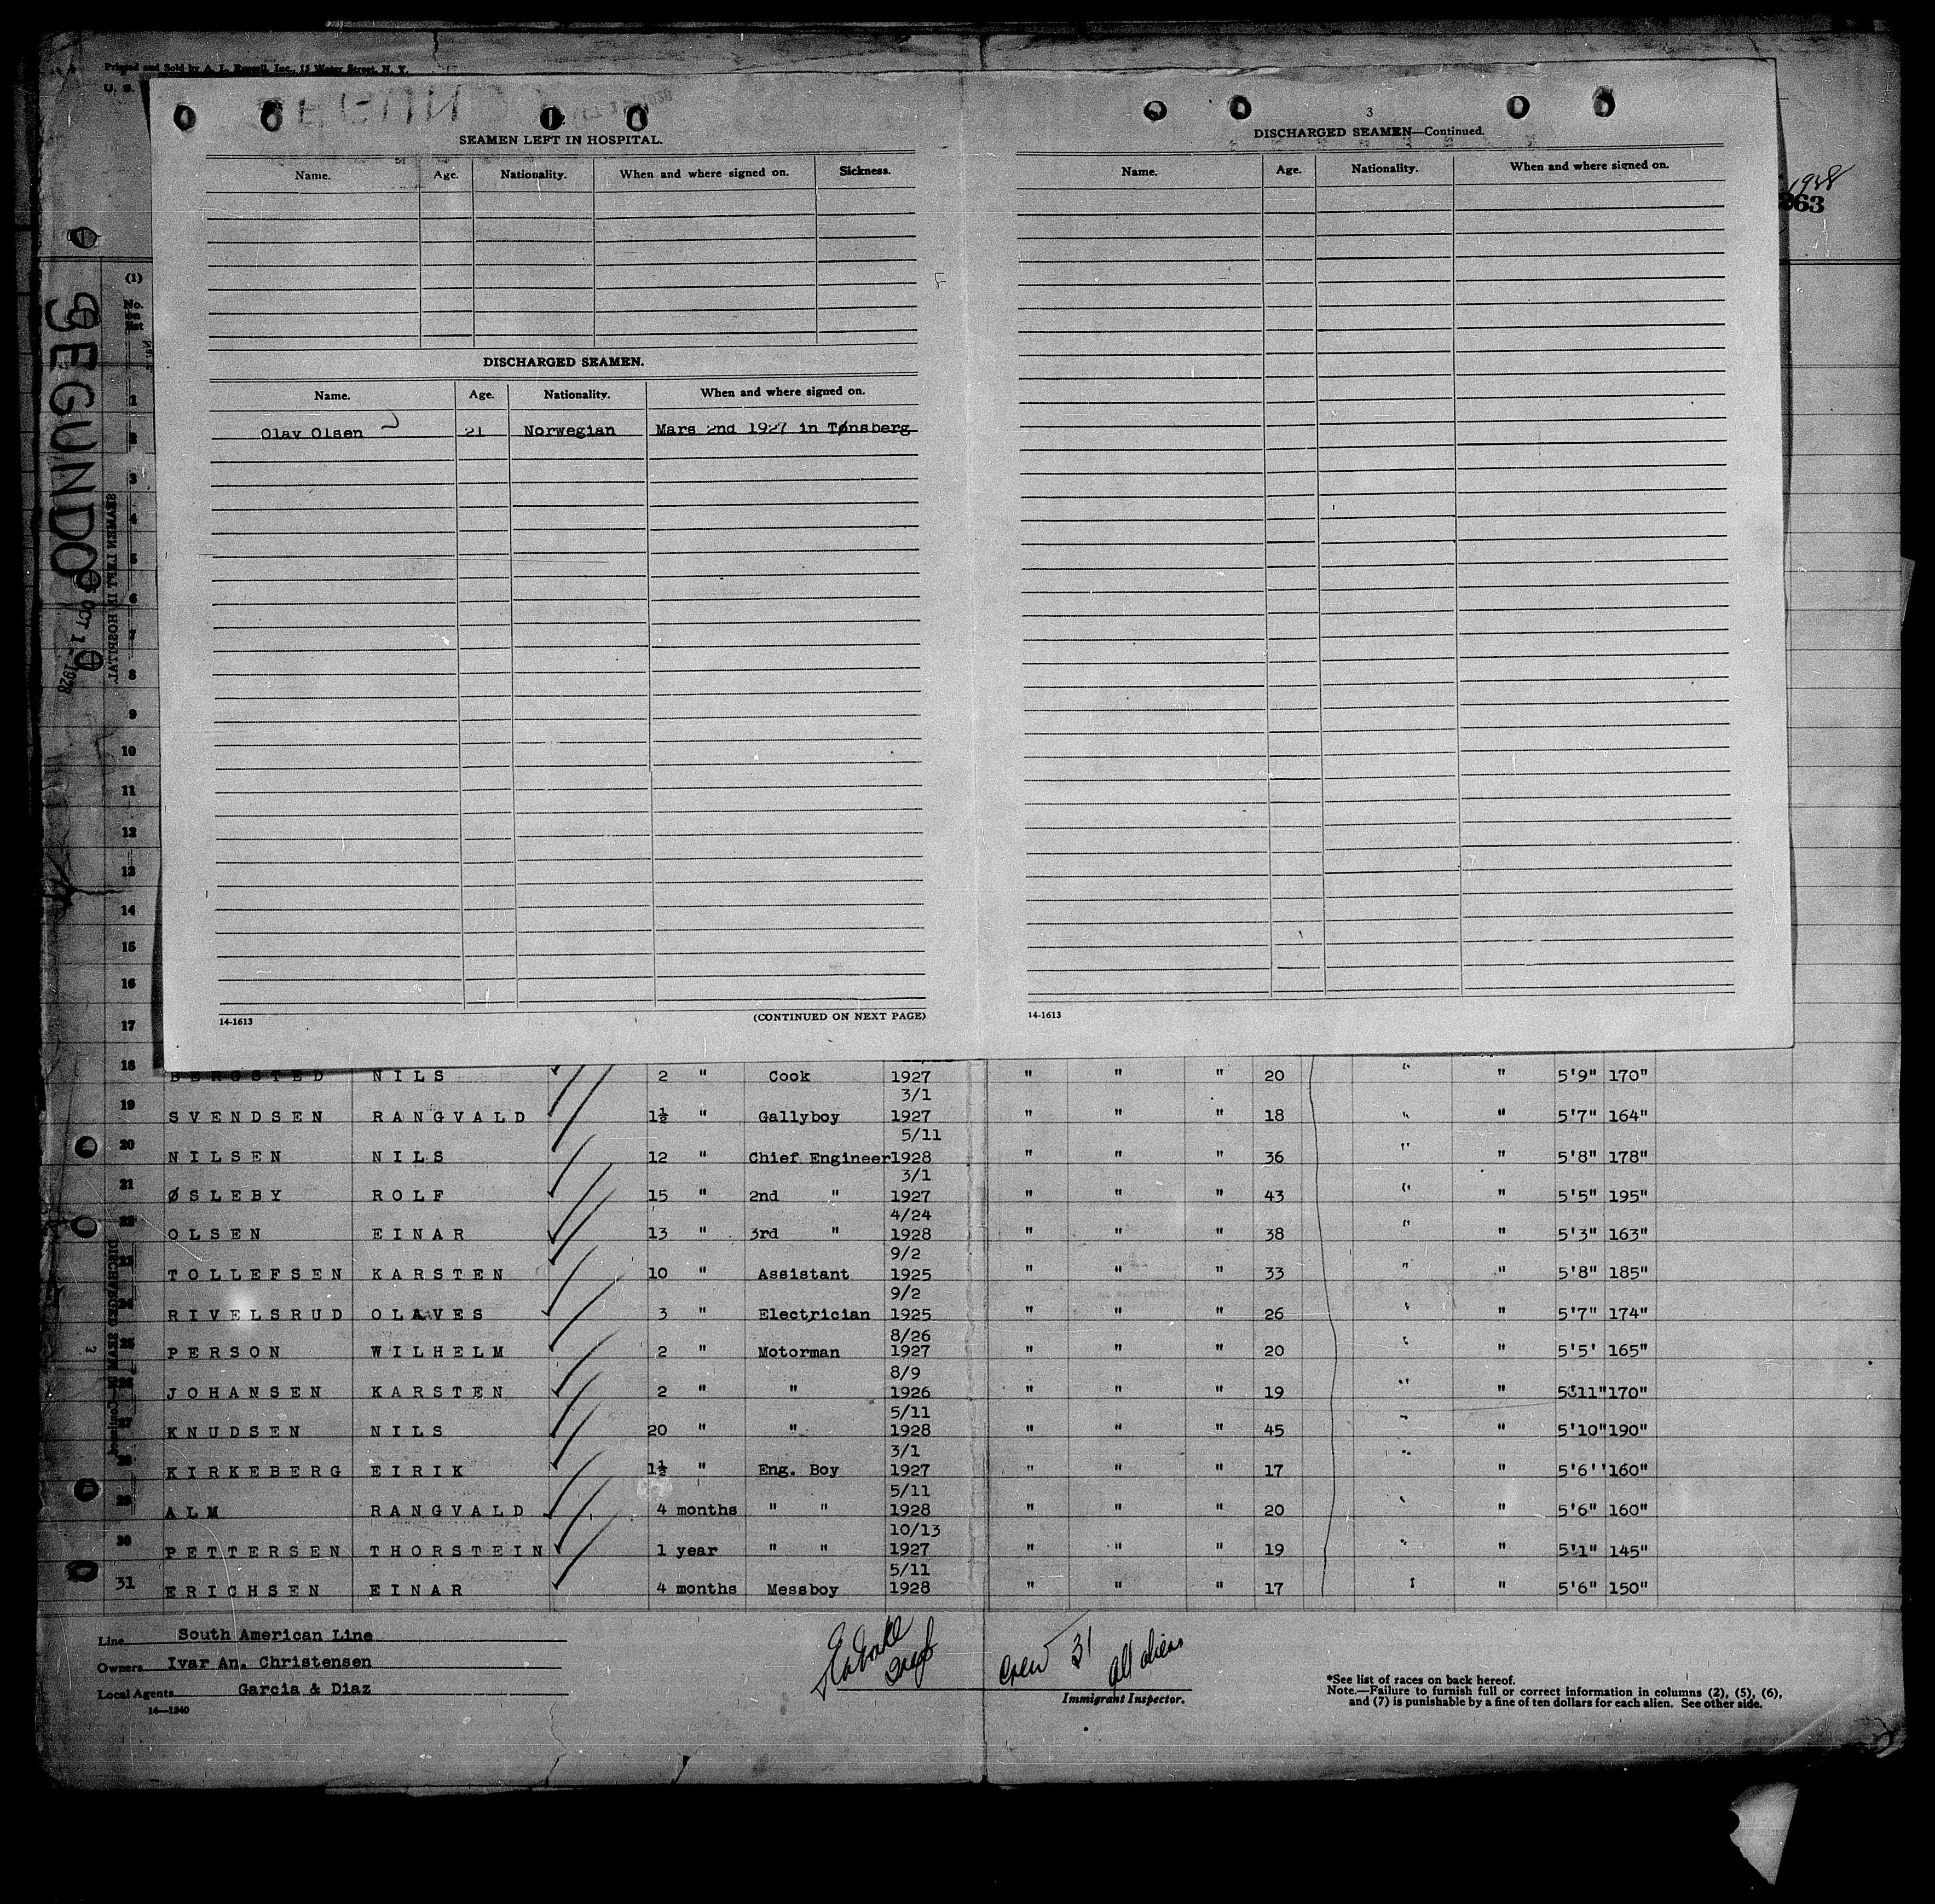 Printed and Sold by A. L. Russell, Inc., 15 Water Street, N. Y.
U. S.
SEAMEN LEFT IN HOSPITAL.
Name. Age. Nationality. When and where signed on. Sickness.
DISCHARGED SEAMEN.
Name. Age. Nationality. When and where signed on.
Olav Olsen 21 Norwegian Mars 2nd 1927 in Tønsberg
14-1613 (CONTINUED ON NEXT PAGE)
3
DISCHARGED SEAMEN—Continued.
Name. Age. Nationality. When and where signed on.
14-1613
1928
263
SEGUNDO
OCT 1 - 1928
(1)
No. on list
1
2
3
4
5
6
7
8
9
10
11
12
13
14
15
16
17
18 BERGSTED NILS 2 " Cook 1927 " " " 20 " " 5'9" 170"
19 SVENDSEN RANGVALD 1½ " Gallyboy 3/1 1927 " " " 18 " " 5'7" 164"
20 NILSEN NILS 12 " Chief Engineer 5/11 1928 " " " 36 " " 5'8" 178"
21 ØSLEBY ROLF 15 " 2nd " 3/1 1927 " " " 43 " " 5'5" 195"
22 OLSEN EINAR 13 " 3rd " 4/24 1928 " " " 38 " " 5'3" 163"
23 TOLLEFSEN KARSTEN 10 " Assistant 9/2 1925 " " " 33 " " 5'8" 185"
24 RIVELSRUD OLAVES 3 " Electrician 9/2 1925 " " " 26 " " 5'7" 174"
25 PERSON WILHELM 2 " Motorman 8/26 1927 " " " 20 " " 5'5' 165"
26 JOHANSEN KARSTEN 2 " " 8/9 1926 " " " 19 " " 5'11" 170"
27 KNUDSEN NILS 20 " " 5/11 1928 " " " 45 " " 5'10" 190"
28 KIRKEBERG EIRIK 1½ " Eng. Boy 3/1 1927 " " " 17 " " 5'6'' 160"
29 ALM RANGVALD 4 months " " 5/11 1928 " " " 20 " " 5'6" 160"
30 PETTERSEN THORSTEIN 1 year " " 10/13 1927 " " " 19 " " 5'1" 145"
31 ERICHSEN EINAR 4 months Messboy 5/11 1928 " " " 17 " " 5'6" 150"
Line South American Line
Owners Ivar An. Christensen
Local Agents Garcia & Diaz
14—1240
Crew 31 all aliens
Immigrant Inspector.
*See list of races on back hereof.
Note.—Failure to furnish full or correct information in columns (2), (5), (6),
and (7) is punishable by a fine of ten dollars for each alien. See other side.